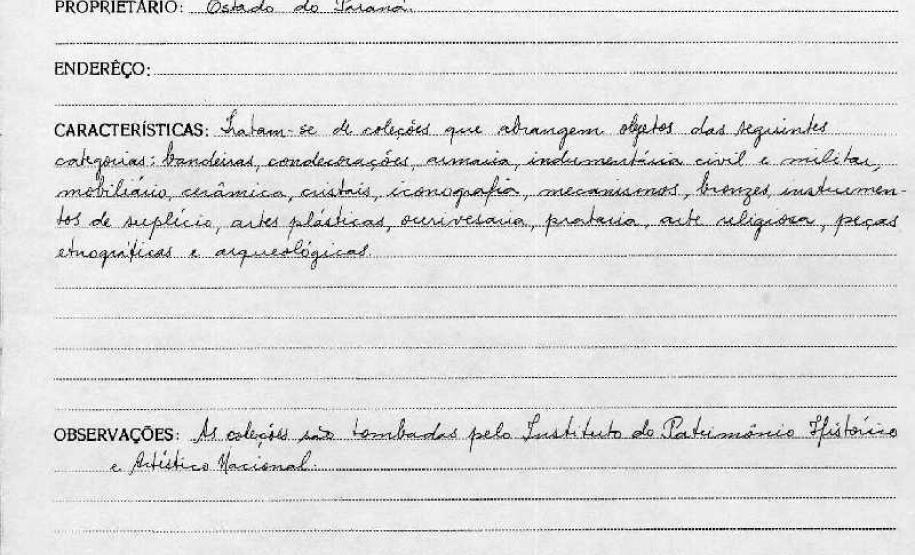 PROPRIETÁRIO: Estado do Paraná.
ENDERÊÇO:
CARACTERÍSTICAS: Tratam-se de coleções que abrangem objetos das seguintes
categorias: bandeiras, condecorações, armaria, indumentária civil e militar,
mobiliário, cerâmica, cristais, iconografia, mecanismos, bronzes, instrumen-
tos de suplício, artes plásticas, ourivesaria, prataria, arte religiosa, peças
etnográficas e arqueológicas.
OBSERVAÇÕES: As coleções são tombadas pelo Instituto do Patrimônio Histórico
e Artístico Nacional.